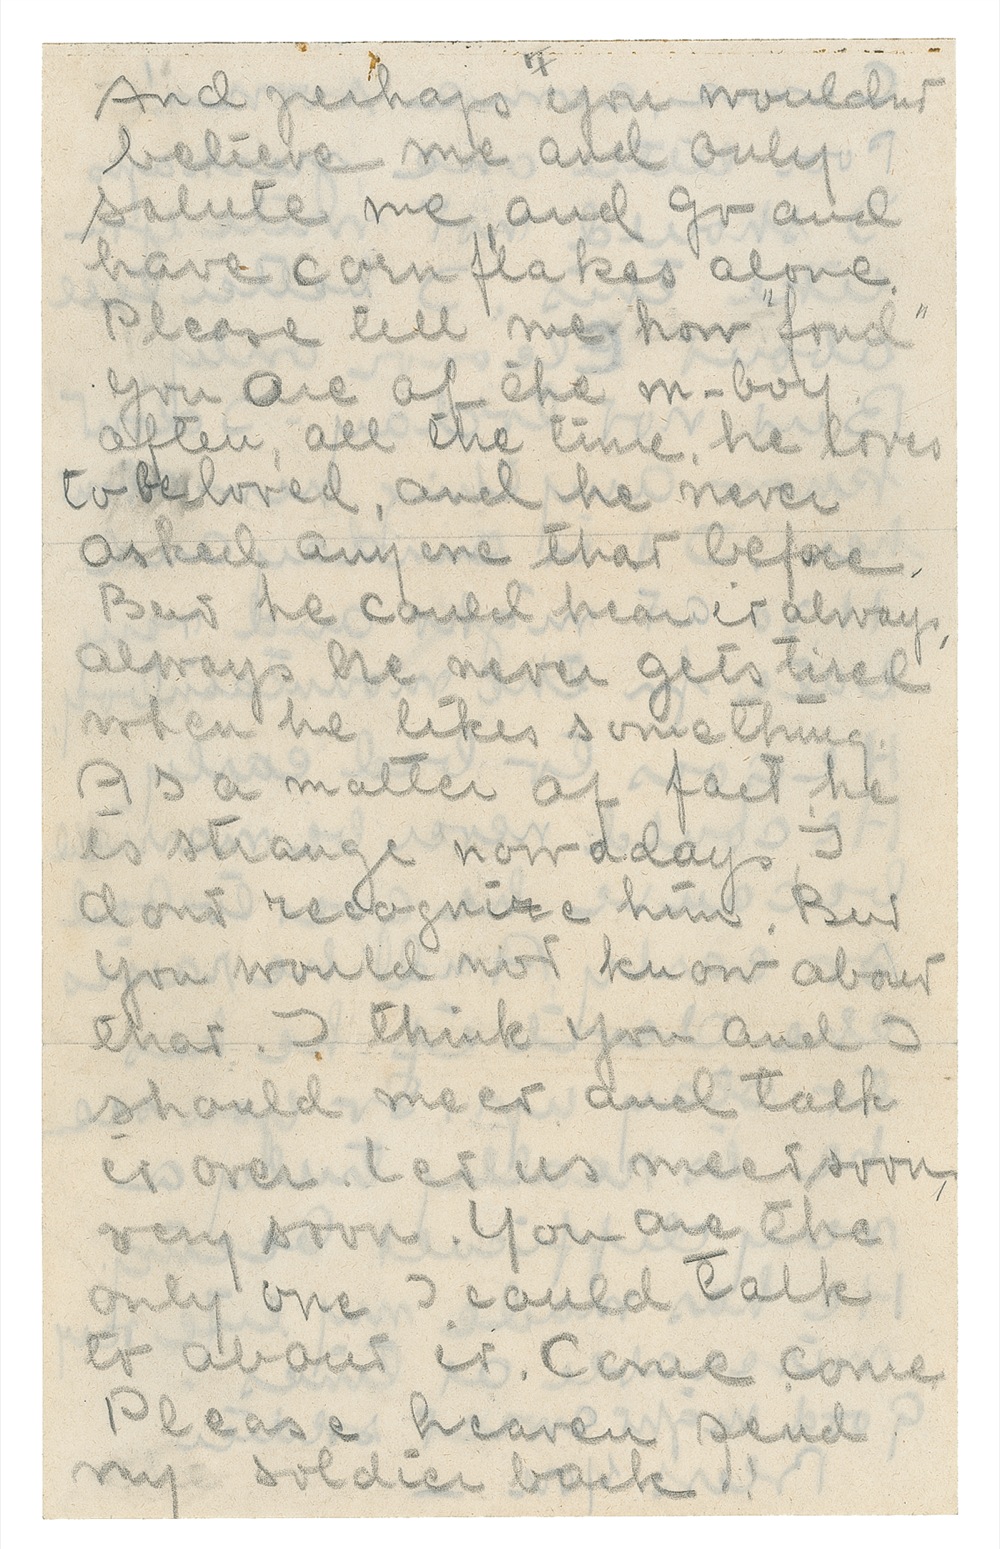 And perhaps you wouldnt
believe me and only
salute me, and go and
have corn flakes alone.
Please tell me how "fond"
you are of the m-boy.
often, all the time, he loves
to be loved, and he never
asked anyone that before.
But he could hear it always,
always he never gets tired
when he likes something.
As a matter of fact he
is strange nowadays, I
dont recognize him. But
you would not know about
that. I think you and I
should meet and talk
it over. Let us meet soon,
very soon. You are the
only one I could talk
to about it. Come come
Please heaven send
my soldier back!!